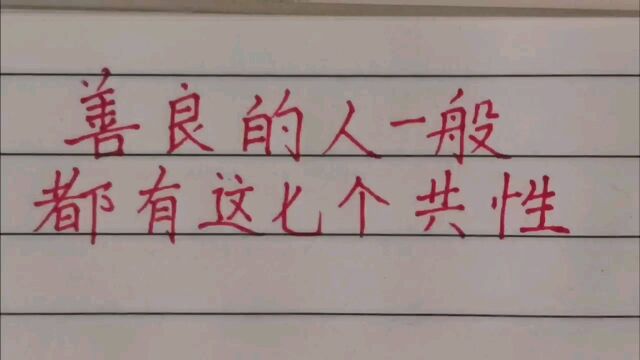 善良的人一般
都有这七个共性